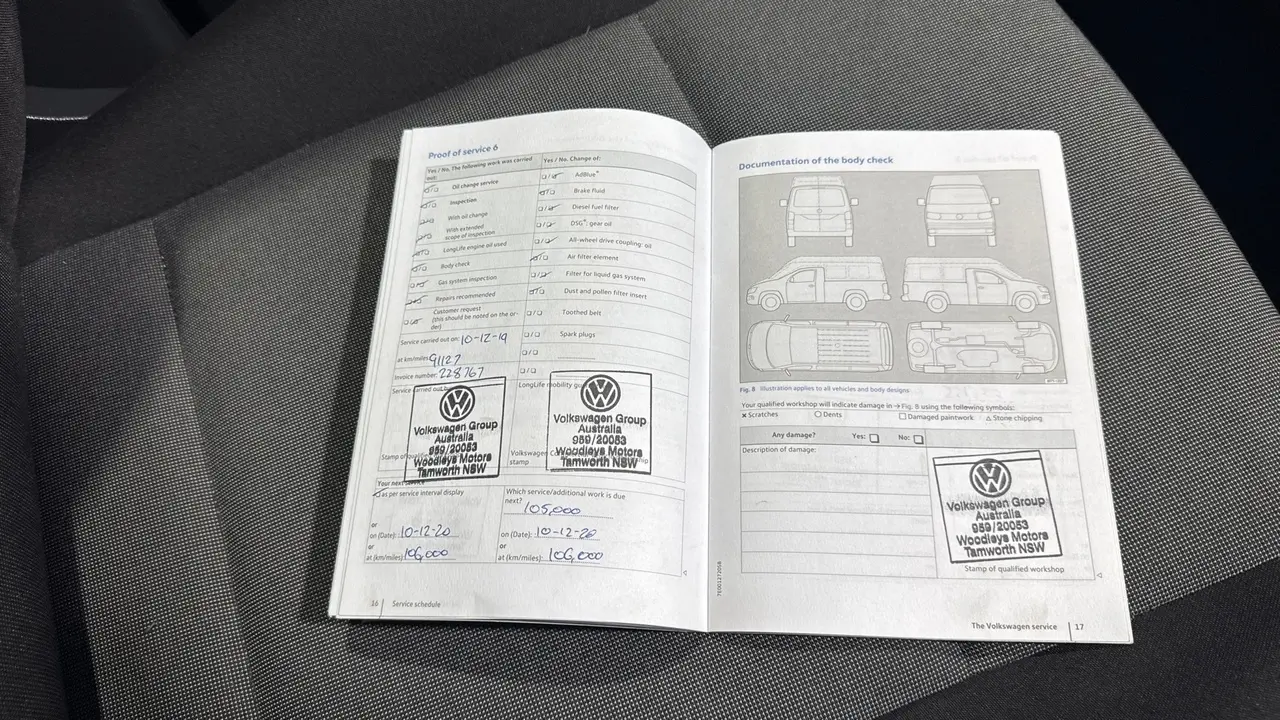 Proof of service 6
Yes / No. The following work was carried out:
Oil change service
Inspection
With oil change
With extended
scope of inspection
LongLife engine oil used
Body check
Gas system inspection
Repairs recommended
Customer request
(this should be noted on the or-
der)
Service carried out on: 10-12-19
at km/miles 91127
Invoice number: 228767
Service carried out
Yes / No. Change of:
AdBlue®
Brake fluid
Diesel fuel filter
DSG®: gear oil
All-wheel drive coupling: oil
Air filter element
Filter for liquid gas system
Dust and pollen filter insert
Toothed belt
Spark plugs
LongLife mobility
Volkswagen Group
Australia
959/20053
Woodleys Motors
Tamworth NSW
Stamp of
Volkswagen Group
Australia
959/20053
Woodleys Motors
Tamworth NSW
Volkswagen
stamp
Your next service
as per service interval display
or
on (Date): 10-12-20
or
at (km/miles): 106,000
Which service/additional work is due
next? 105,000
on (Date): 10-12-20
or
at (km/miles): 106,000
16 Service schedule
Documentation of the body check
Fig. 8 Illustration applies to all vehicles and body designs
Your qualified workshop will indicate damage in → Fig. 8 using the following symbols:
× Scratches ○ Dents □ Damaged paintwork △ Stone chipping
Any damage? Yes: □ No: □
Description of damage:
Volkswagen Group
Australia
959/20053
Woodleys Motors
Tamworth NSW
Stamp of qualified workshop
The Volkswagen service 17